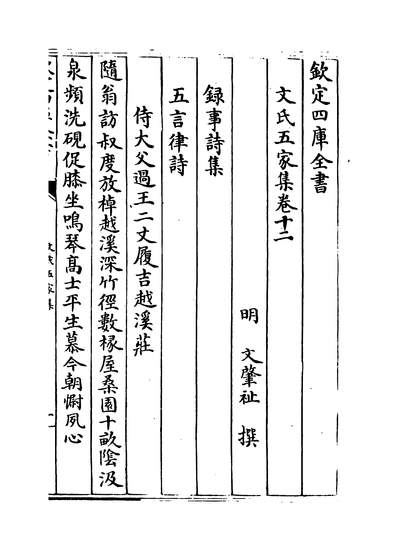 欽定四庫全書
文氏五家集卷十二
明 文肇祉 撰
録事詩集
五言律詩
侍大父過王二丈履吉越溪莊
隨翁訪叔度放棹越溪深竹徑數椽屋桑園十畝陰汲
泉頻洗硯促膝坐鳴琴髙士平生慕今朝慰夙心
文氏五家集